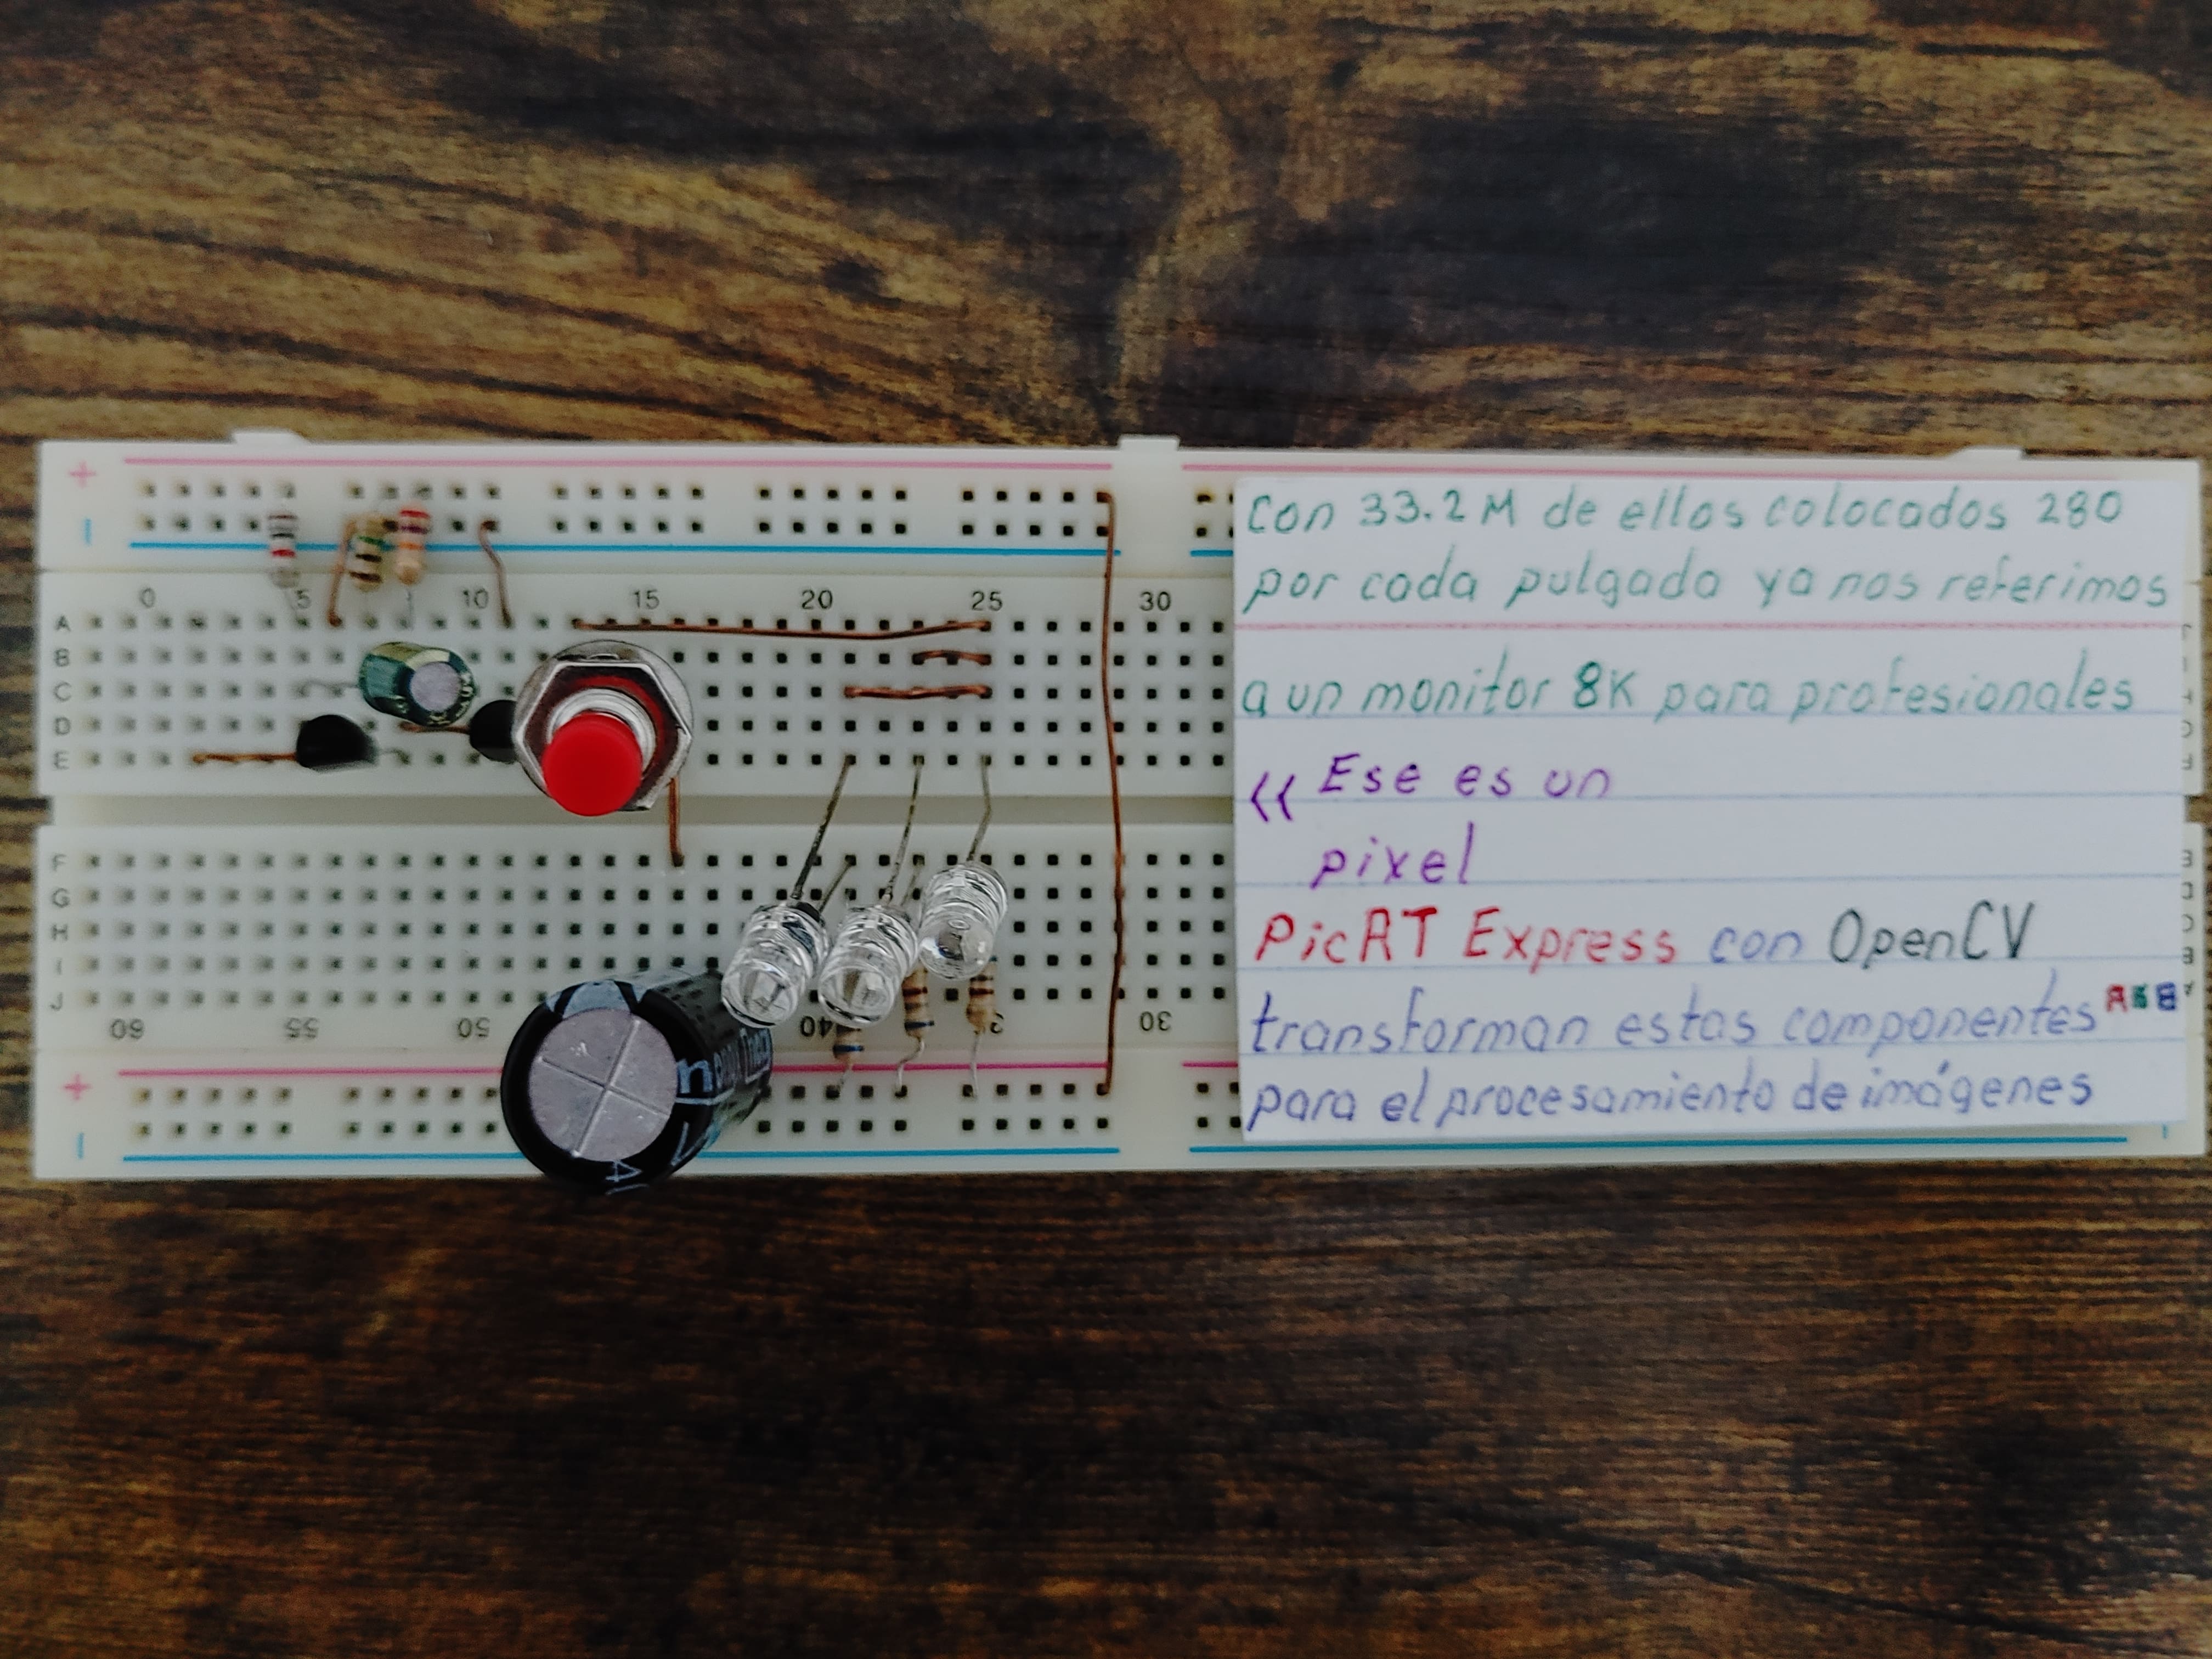 +
0 5 10 15 20 25 30
A
B
C
D
E
F
G
H
I
J
60 55 50 40 30
+
Con 33.2 M de ellos colocados 280
por cada pulgada ya nos referimos
a un monitor 8K para profesionales
<< Ese es un
pixel
PicRT Express con OpenCV
transforman estos componentes RGB
para el procesamiento de imágenes